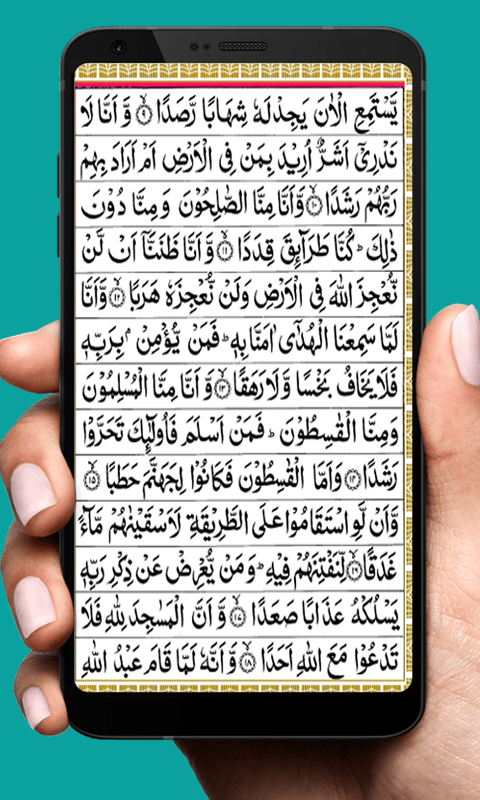 يَّسْتَمِعِ الْاٰنَ يَجِدْ لَهٗ شِهَابًا رَّصَدًا ۙ﴿۹﴾ وَّ اَنَّا لَا
نَدْرِیْۤ اَشَرٌّ اُرِیْدَ بِمَنْ فِی الْاَرْضِ اَمْ اَرَادَ بِهِمْ
رَبُّهُمْ رَشَدًا ۙ﴿۱۰﴾ وَّ اَنَّا مِنَّا الصّٰلِحُوْنَ وَ مِنَّا دُوْنَ
ذٰلِكَ ؕ كُنَّا طَرَآئِقَ قِدَدًا ۙ﴿۱۱﴾ وَّ اَنَّا ظَنَنَّاۤ اَنْ لَّنْ
نُّعْجِزَ اللّٰهَ فِی الْاَرْضِ وَلَنْ نُّعْجِزَهٗ هَرَبًا ۙ﴿۱۲﴾ وَّ اَنَّا
لَمَّا سَمِعْنَا الْهُدٰۤی اٰمَنَّا بِهٖ ؕ فَمَنْ یُّؤْمِنْۢ بِرَبِّهٖ
فَلَا یَخَافُ بَخْسًا وَّ لَا رَهَقًا ۙ﴿۱۳﴾ وَّ اَنَّا مِنَّا الْمُسْلِمُوْنَ
وَمِنَّا الْقٰسِطُوْنَ ؕ فَمَنْ اَسْلَمَ فَاُولٰٓئِكَ تَحَرَّوْا
رَشَدًا ﴿۱۴﴾ وَاَمَّا الْقٰسِطُوْنَ فَكَانُوْا لِجَهَنَّمَ حَطَبًا ۙ﴿۱۵﴾
وَّاَنْ لَّوِ اسْتَقَامُوْا عَلَی الطَّرِیْقَةِ لَاَسْقَیْنٰهُمْ مَّآءً
غَدَقًا ۙ﴿۱۶﴾ لِّنَفْتِنَهُمْ فِیْهِ ؕ وَمَنْ یُّعْرِضْ عَنْ ذِكْرِ رَبِّهٖ
یَسْلُكْهُ عَذَابًا صَعَدًا ۙ﴿۱۷﴾ وَّ اَنَّ الْمَسٰجِدَ لِلّٰهِ فَلَا
تَدْعُوْا مَعَ اللّٰهِ اَحَدًا ۙ﴿۱۸﴾ وَّ اَنَّهٗ لَمَّا قَامَ عَبْدُ اللّٰهِ